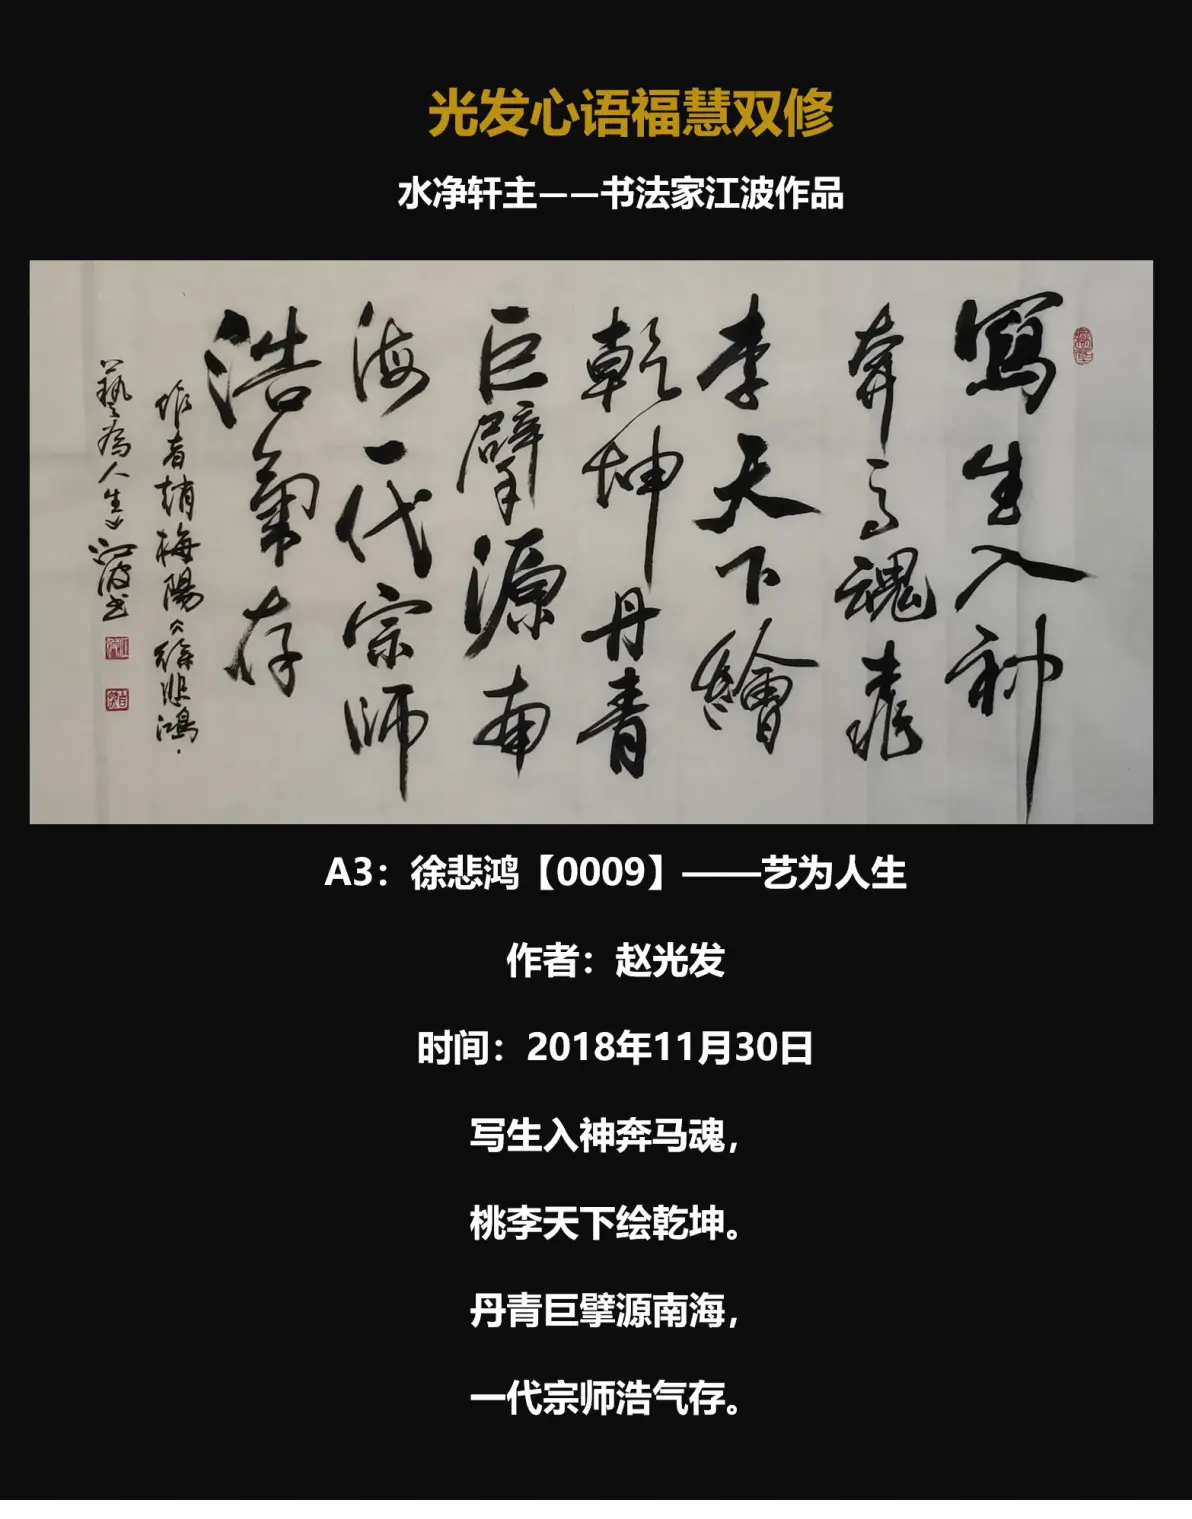 光发心语福慧双修
水净轩主——书法家江波作品
寫生入神
奔马魂桃
李天下繪
乾坤丹青
巨擘源南
海一代宗师
浩氣存
作者趙梅陽《徐悲鴻·
藝為人生》江波书
A3：徐悲鸿【0009】——艺为人生
作者：赵光发
时间：2018年11月30日
写生入神奔马魂，
桃李天下绘乾坤。
丹青巨擘源南海，
一代宗师浩气存。